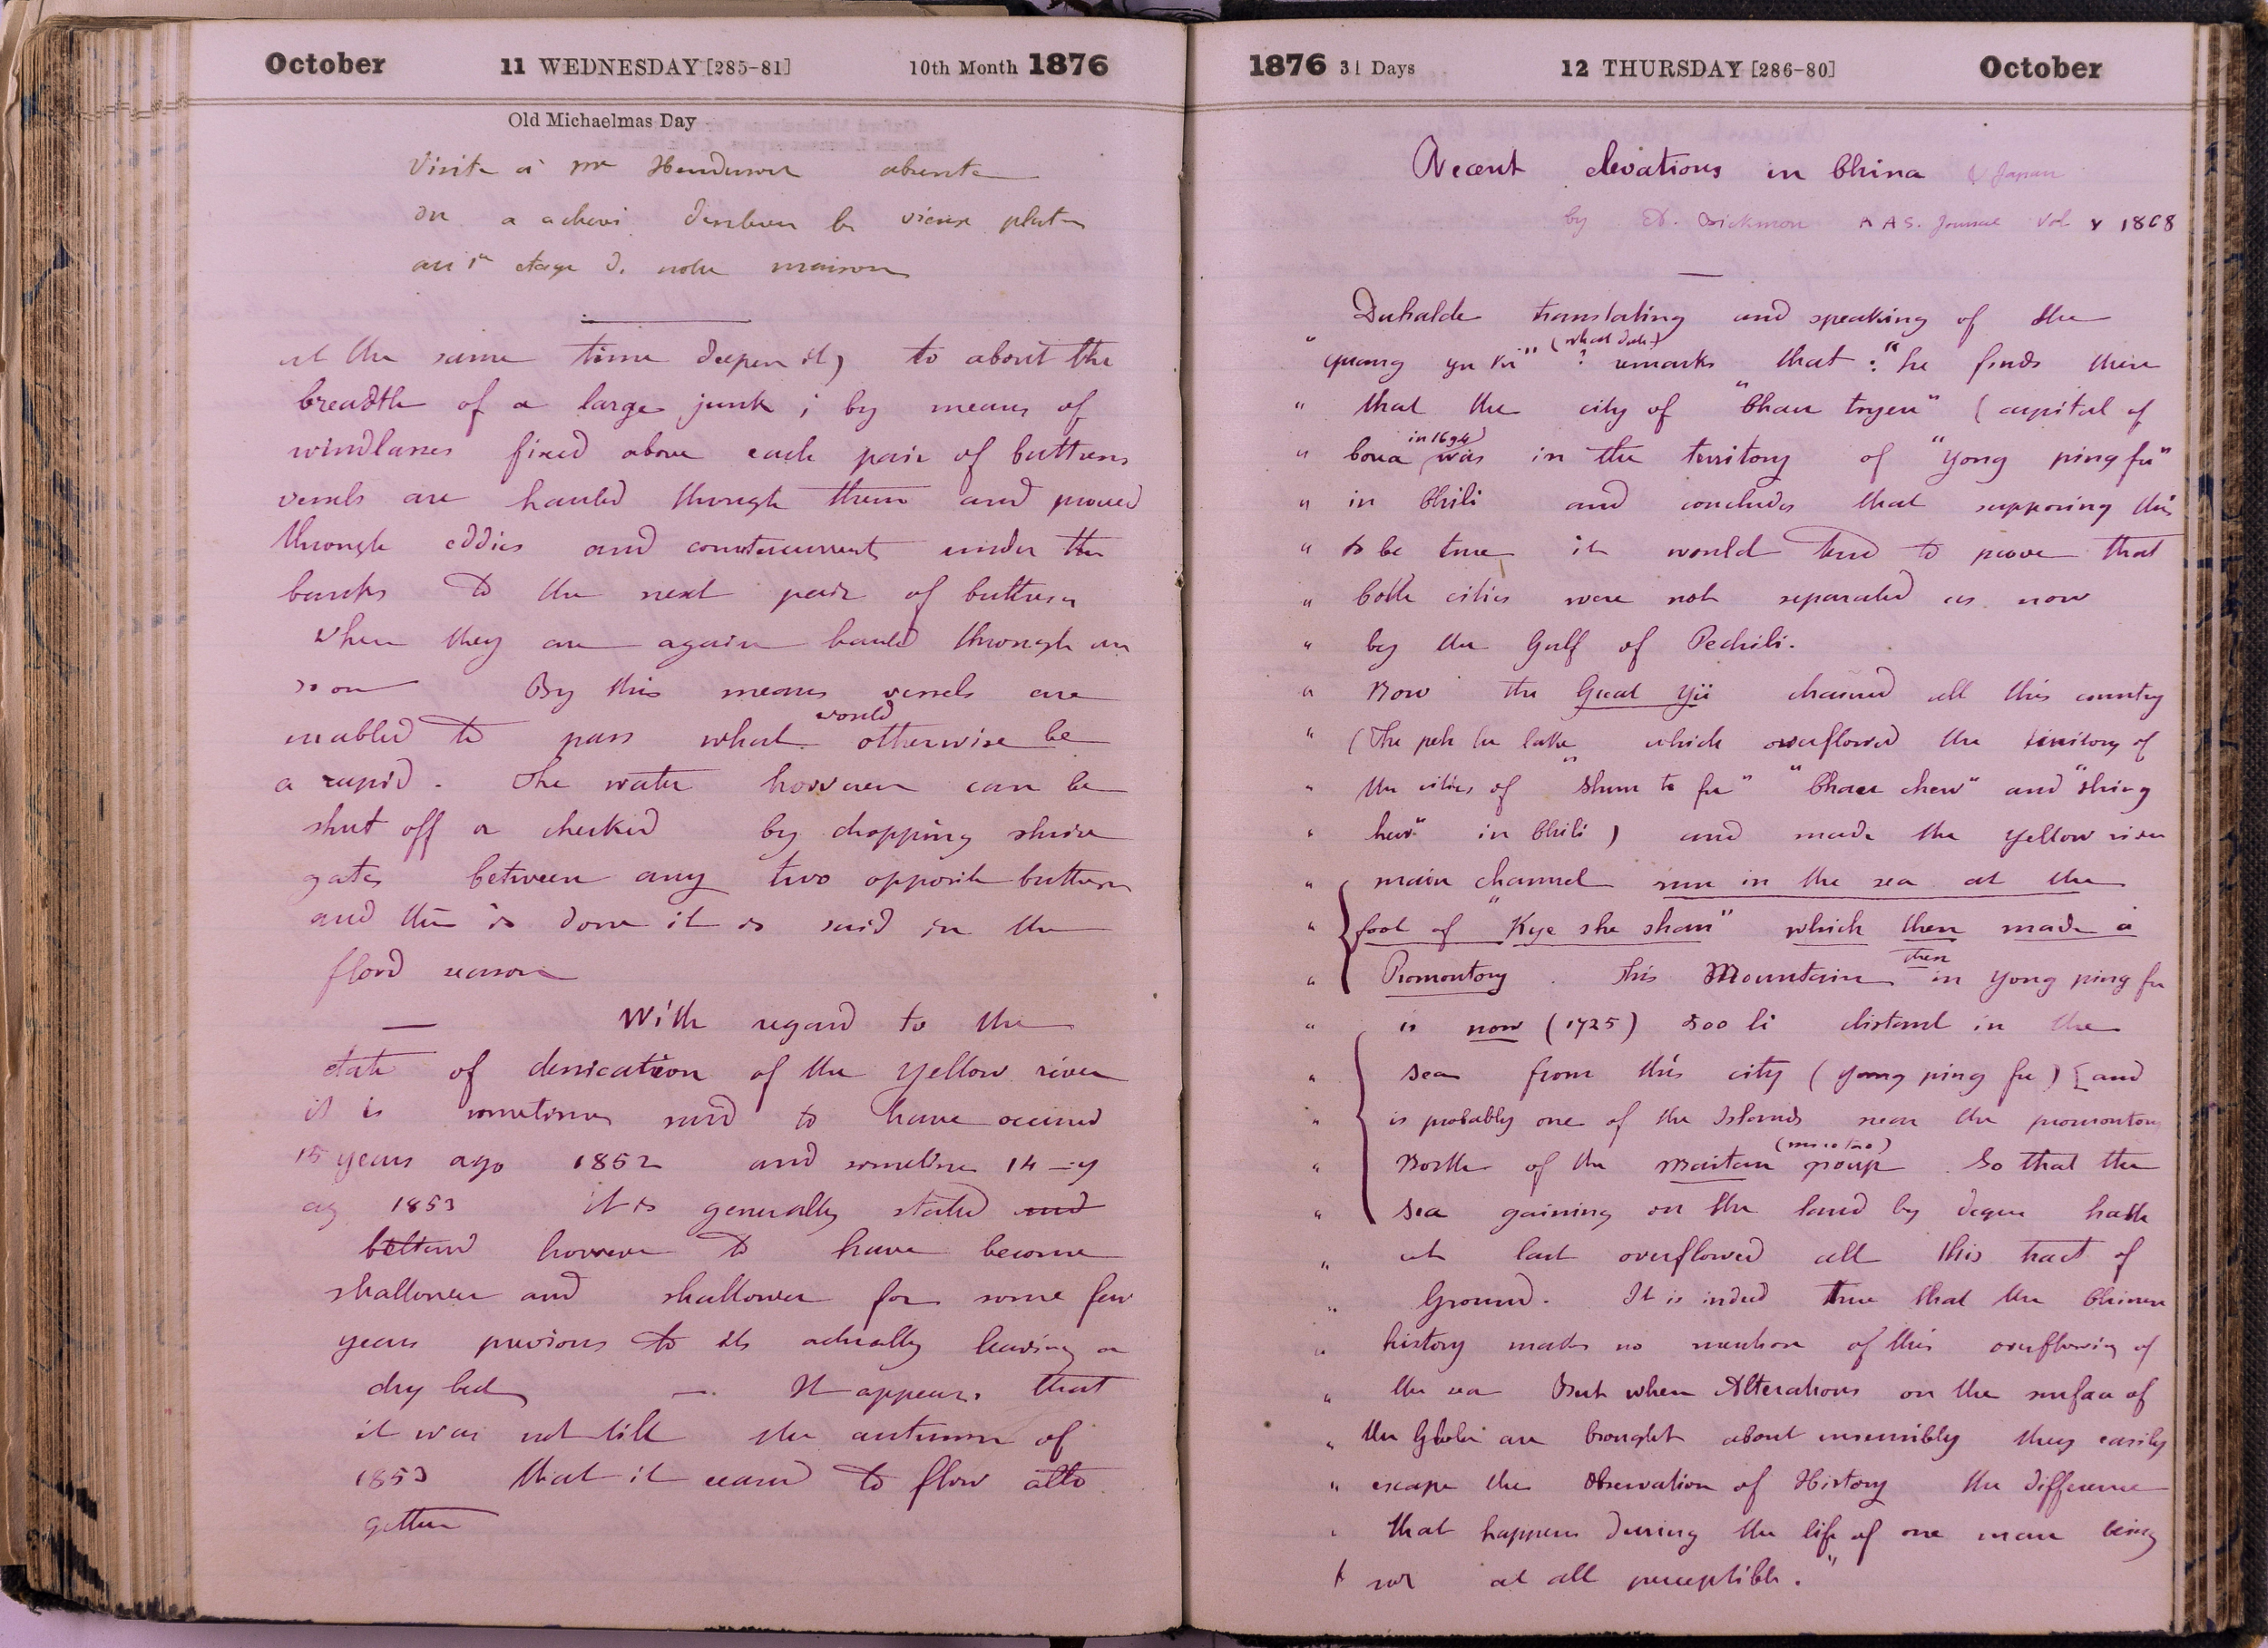 October 11 WEDNESDAY [285-81] 10th Month 1876
Old Michaelmas Day
Visite à Mme Henderson absente
on a achevi d'enlever le vieux platre
au 1er etage de notre maison
at the same time deepen it) to about the
breadth of a large junk ; by means of
windlasses fixed above each pair of buttress
vessels are hauled through them and proceed
through eddies and countercurrent under the
banks to the next pair of buttress
when they are again hauled through an
so on By this means vessels are
enabled to pass what would otherwise be
a rapid . The water however can be
shut off or checked by dropping sluice
gates between any two opposite buttress
and this is done it is said in the
flood season
— With regard to the
state of desiccation of the Yellow river
it is sometimes said to have occured
15 years ago 1852 and sometime 14 - y
ag 1853 it is generally stated and
however to have become
shallower and shallower for some few
years previous to its actually leaving a
dry bed —. It appears that
it was not till the autumn of
1853 that it ceased to flow alto
gether
1876 31 Days 12 THURSDAY [286-80] October
Recent elevations in China & Japan
by A. Bickmore RAS. Journal Vol V 1868
Duhalde translating and speaking of the
"quang yu ki" (what date) ? remarks that : "he finds there
" that the city of "Chau tsyen" (capital of
" Corea in 1694) was in the territory of "Yong ping fu"
" in Chili and concludes that supposing this
" to be true it would tend to prove that
" both cities were not separated as now
" by the Gulf of Pechili.
" Now the Great Yü drained all this country
" (The peh lu lake which overflowed the territory of
" the cities of "Shun te fu" "Chau chew" and "Shing
" hew" in Chili ) and made the Yellow river
" main channel run in the sea at the
" foot of "Kye she shan" which then made a
" Promontory . This Mountain then in Yong ping fu
" is now (1725) 500 li distant in the
" sea from this city (Yong ping fu) [and
" is probably one of the Islands near the promontory
" North of the Miautau (miao tao) group . So that the
" sea gaining on the land by degree hath
" at last overflowed all this tract of
" Ground. It is indeed true that the Chinese
" history makes no mention of this overflowing of
" the sea But when Alterations on the surface of
" the Globe are brought about insensibly they easily
" escape the Observation of History the difference
" that happens during the life of one man being
" not at all perceptible."